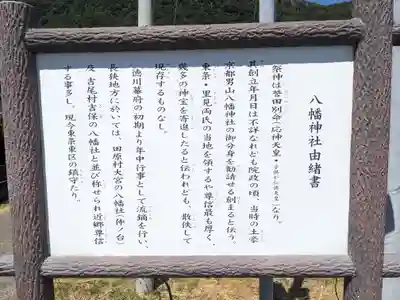 八幡神社由緒書
祭神は誉田別命(応神天皇・)なり。
其創立年月日は不詳なれども院政の頃、当時の土豪
京都男山八幡神社の御分身を勧請せる創まると伝う。
東条・里見両氏の当地を領するや尊信最も厚く、
幾多の神宝を寄進したると伝われども、散佚して
現存するものなし。
徳川幕府の初期より年中行事として流鏑を行い、
長狭地方に於いては、田原村大宮の八幡社(仲ノ台)
及 吉尾村吉保の八幡社と並び称せられ近郷尊信
する事多し。現今東条東区の鎮守たり。